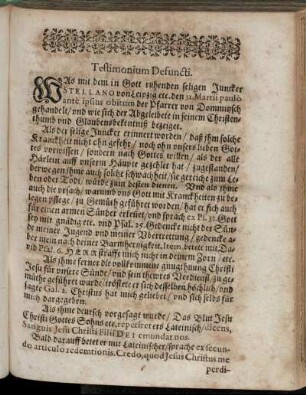 Testimonium Defuncti.
WAs mit dem in Gott ruhenden seligen Juncker
STELLANO von Leipzig etc. den 31. Martii paulò
antè ipsius obitum der Pfarrer von Dommitzsch
gehandelt/ und wie sich der Abgeleibete in seinem Christen-
thumb und Glaubensbekentniß bezeiget.
Als der selige Juncker erinnert worden/ daß ihm solche
Kranckheit nicht ohn gefehr/ noch ohn unsers lieben Got-
tes vorwissen/ sondern nach Gottes willen/ als der alle
Härlein auff unserm Häupte gezehlet hat/ zugestanden/
derwegen ihme auch solche schwachheit/ sie gereiche zum le-
ben oder Tod/ würde zum besten dienen. Und als ihme
auch die ursach/ warumb uns Gott mit Kranckheiten zu be-
legen pflege/ zu Gemüth geführet worden/ hat er sich auch
für einen armen Sünder erkeñet/ und sprach ex Ps. 51. Gott
sey mir gnädig etc. und Psal. 25. Gedencke nicht der Sün-
de meiner Jugend und meiner Vbertrettung/ gedencke a-
ber mein nach deiner Barmhertzigkeit. Item, betete mit Da-
vid Psal. 6. HERR straffe mich nicht in deinem Zorn/ etc.
Als ihme ferner die vollkommene gnugthuung Christi
Jesu für unsere Sünde/ und sein thewres Verdienst zu ge-
müth geführet ward/ tröstete er sich desselben höchlich/ und
sagte Gal. 2. Christus hat mich geliebet/ und sich selbs für
mich dargegeben.
Als ihme deutsch vorgesagt wurde/ Das Blut Jesu
Christi Gottes Sohns etc. repetiret ers Lateinisch/ dicens,
Sanguis Jesu Christi Filii DEI emundat nos.
Bald darauff betet er mit Lateinischer sprache ex secun-
do articulo redemtionis. Credo, quod Jesus Christus me
perdi-